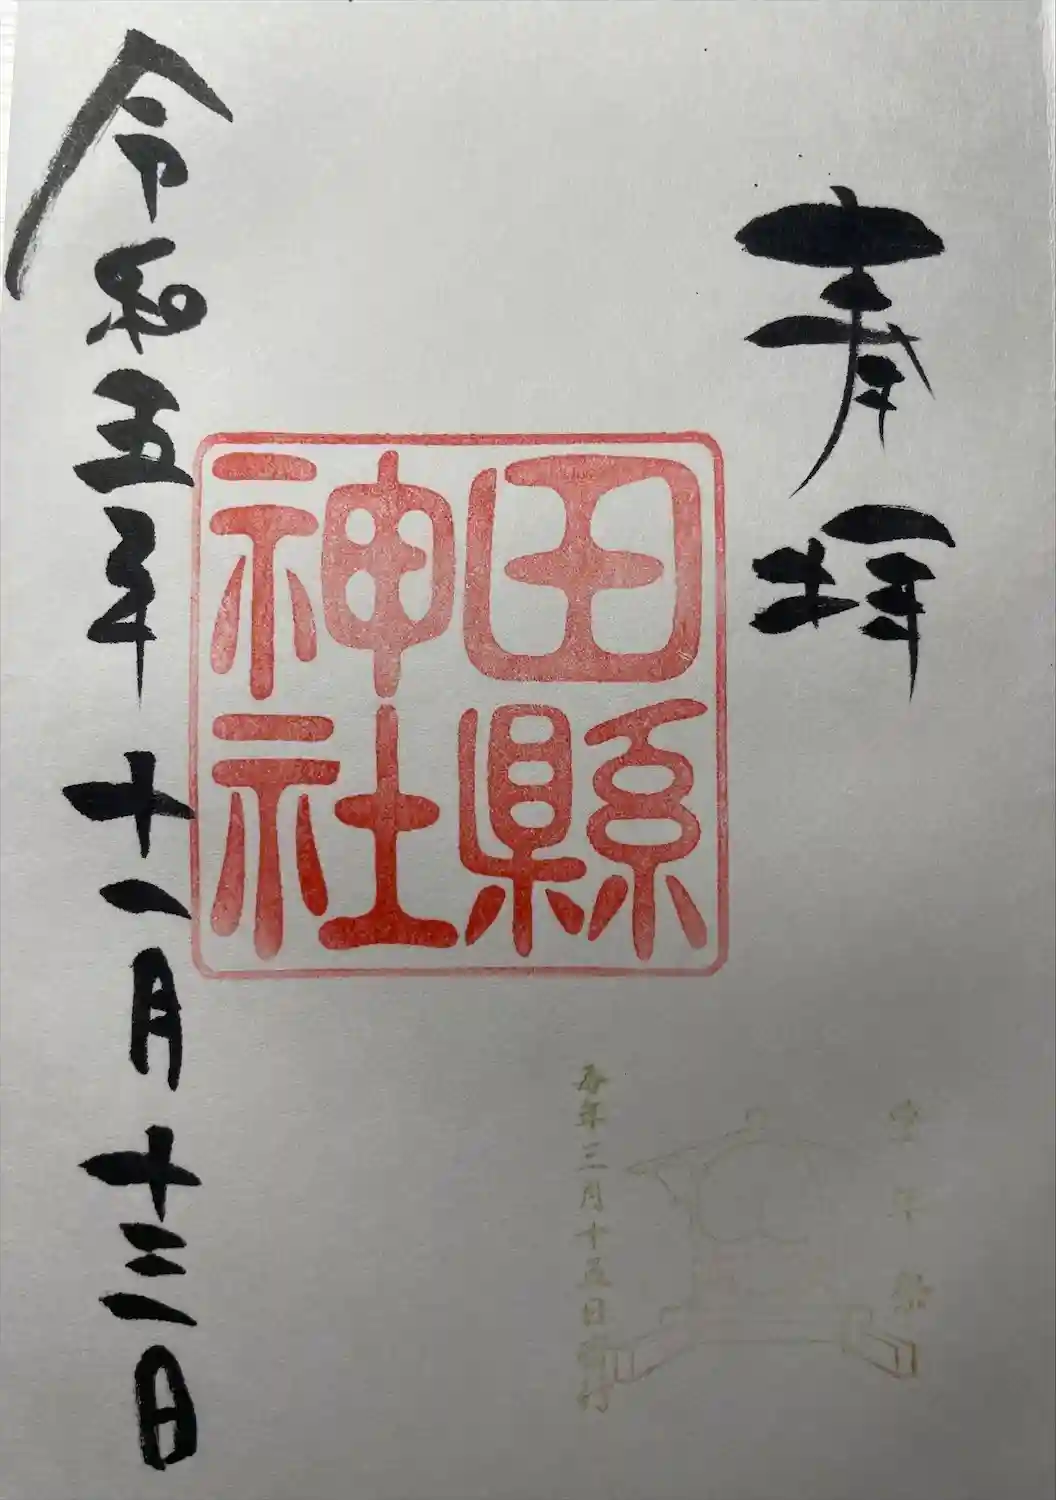 奉拝
田縣
神社
豊年祭
毎年三月十五日斎行
令和五年十一月十三日